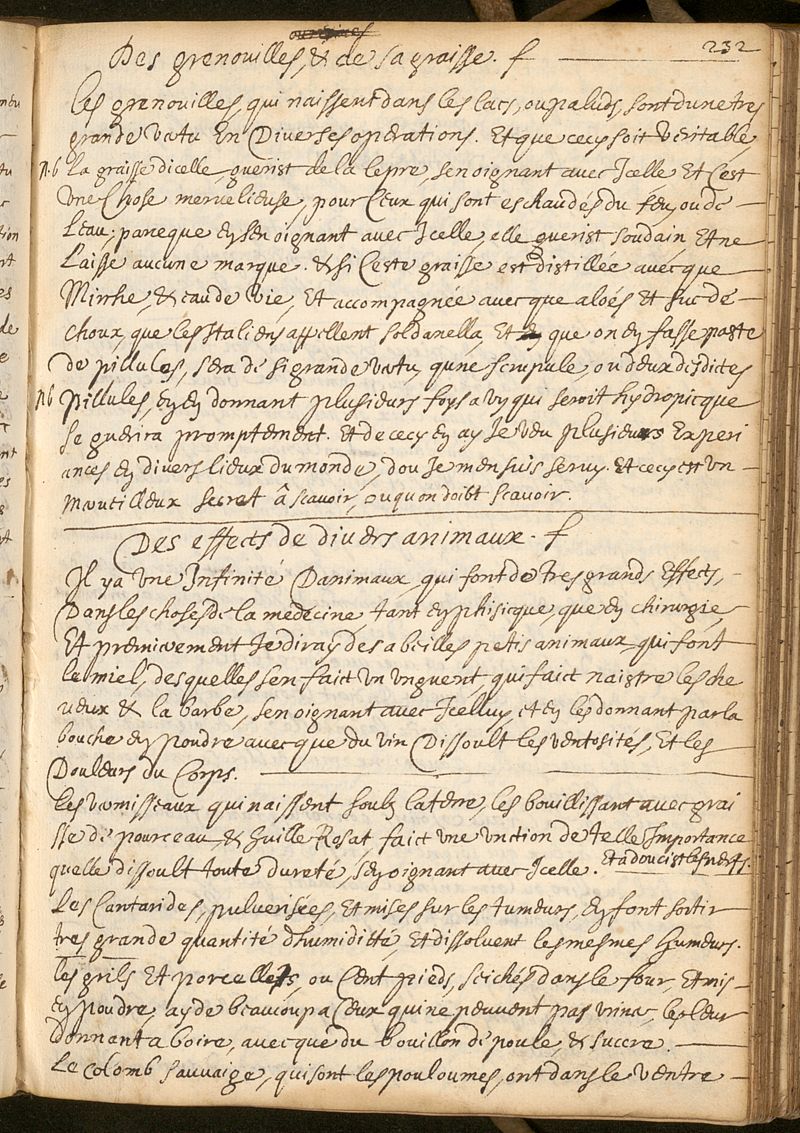 232
Des grenouilles, & de sa graisse. f
Les grenouilles, qui naissent dans les lacs, ou paluds, sont dune tres
grande vertu En Diverses operations. Et que cecy soit veritable,
n.b La graisse dicelle, guerist de la lepre, sen oignant avec Icelle, Et C'est
une Chose mervelieuse, pour Ceux qui sont eschaudés du feu, ou de
Leau, parceque en sen oignant avec Icelle, elle guerist soudain, Et ne
Laisse aucune marque. & si Ceste graisse est distillée avecque
Mirrhe, & eau de vie, Et accompagnée avecque aloés Et suc de
choux, que les Italiens appellent soldanella, Et que on en fasse paste
de pillules, sera de si grande vertu, qune scrupule, ou deux desdites
nb pillules, en en donnant plusieurs foys a un qui seroit hydropicque
se guerira promptement. Et de cecy en ay Je veu plusieurs Experi
ances en divers lieux du monde, dou Je men suis servy. Et cecy est un
merveilleux secret â scavoir, ou quon doibt scavoir.
Des effects de divers animaux. f
Il y a une Infinité Danimaux, qui font de tres grands Effects,
Dans les choses de la medecine tant en phisicque, que en chirurgie,
Et premierement Je diray des abeilles petis animaux qui font
le miel, desquelles sen faict un unguent qui faict naistre les che
veux & la barbe, sen oignant avec Icelluy, et en les donnant par la
bouche en poudre avecque du vin Dissoult les ventosités, Et les
Douleurs du Corps.
Les vermisseaux qui naissent soubz la terre, les bouillissant avec grai
sse de pourceau, & huille Rosat, faict une unction de telle Importance
quelle dissoult toute dureté, sen oignant avec Icelle. Et adoucist les nerfs.
Les Cantarides, pulverisées, Et mises sur les tumeurs, en font sortir
tres grande quantité dhumidité, Et dissolvent les mesmes humeurs.
Les grils Et porcelles, ou Cent pieds, seichés dans le four, Et mis
en poudre, ayde beaucoup a Ceux qui ne peuvent pas uriner, les leur
donnant a boire, avecque du bouillon de poule, & succre.
Le colomb sauvaige, qui sont les pouloumes, ont dans le ventre